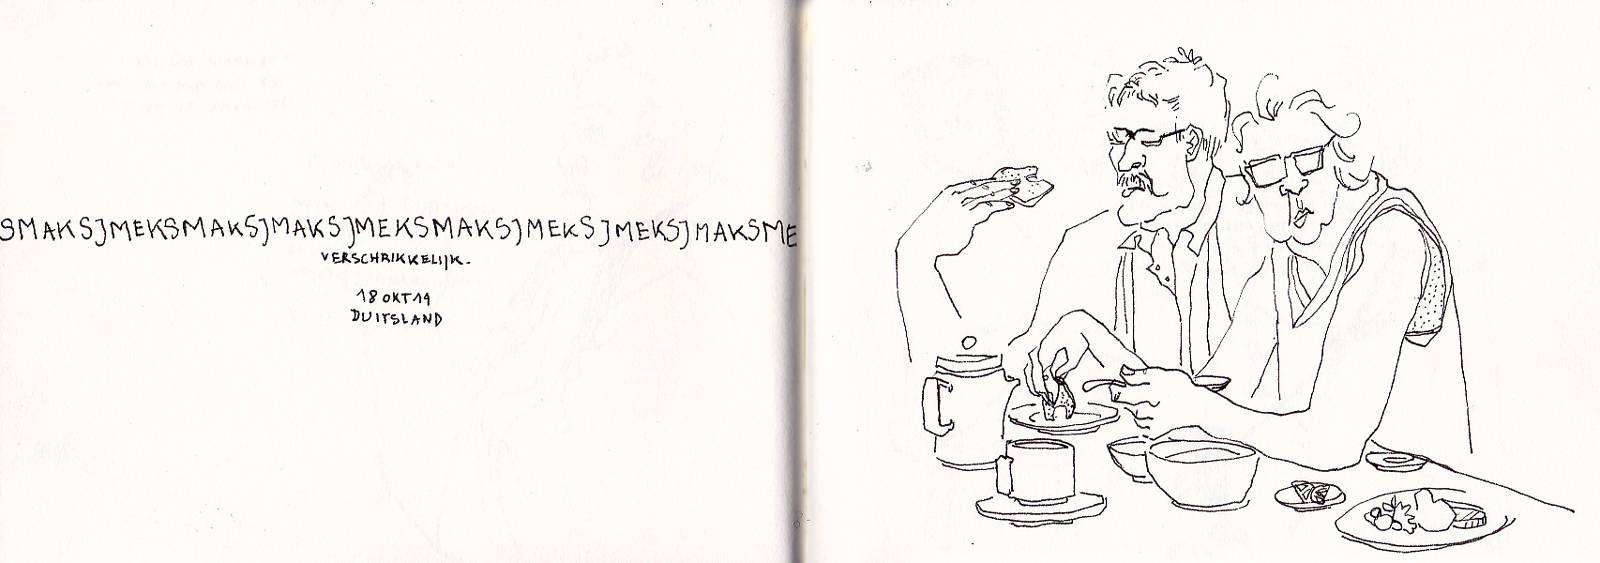 SMAKSJMEKSMAKSJMAKSJMEKSMAKSJMEKSJMEKSJMAKSME
VERSCHRIKKELIJK.
18 OKT 19
DUITSLAND